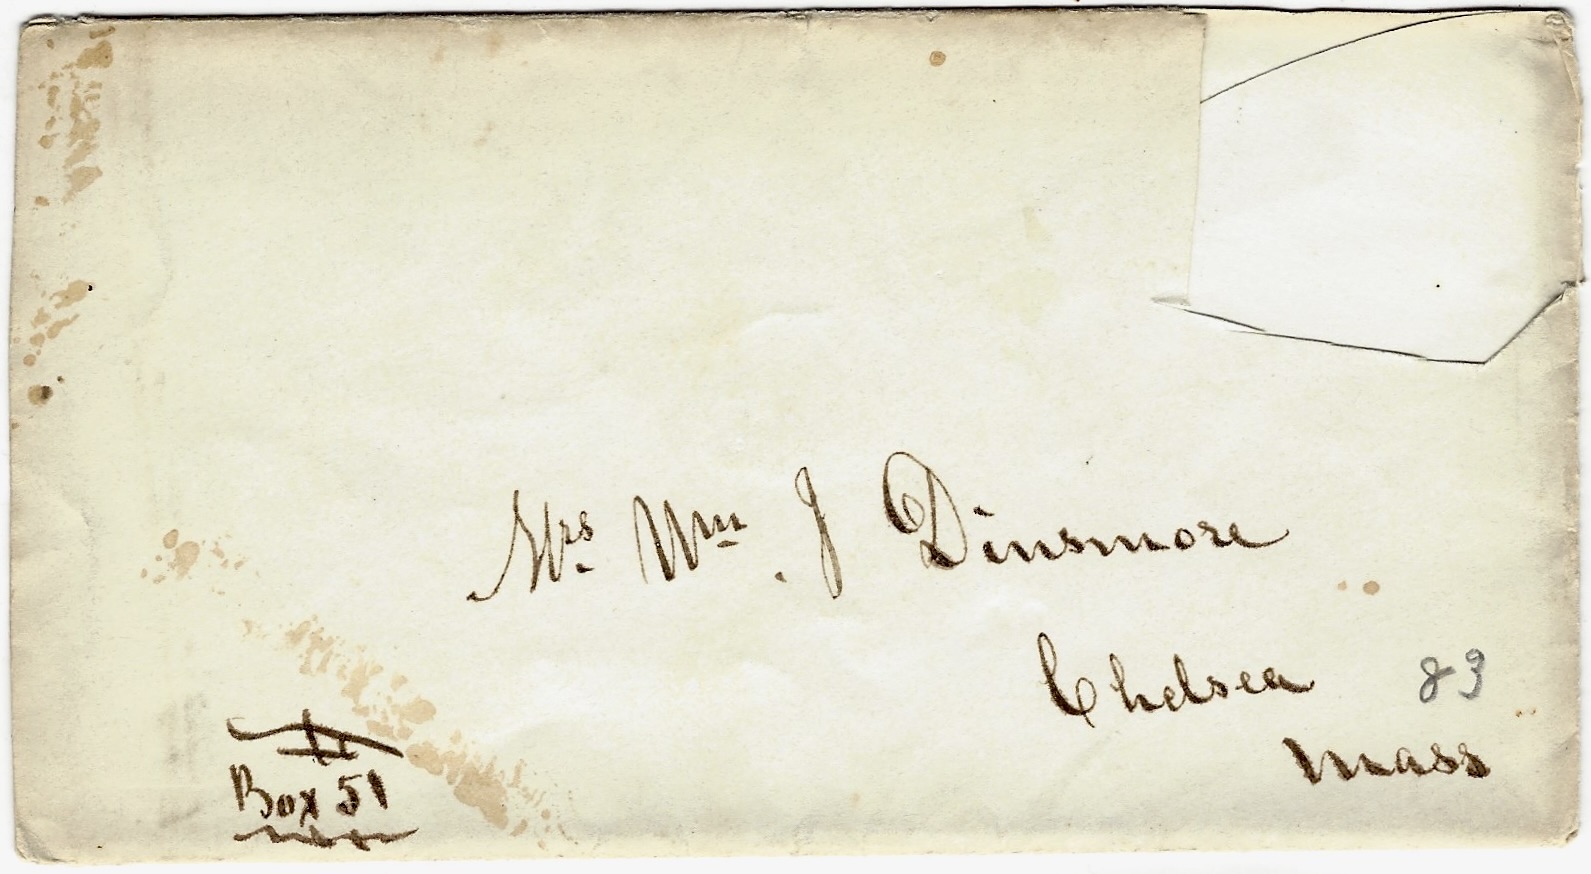 Mrs. Wm. J Dinsmore
Chelsea 83
Mass
Box 51